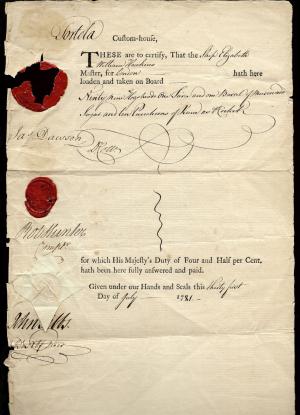 Tortola
Custom-house,
THESE are to certify, That the Ship Elizabeth
William Hoskins
Master, for London hath here
loaden and taken on Board
Ninty nine Hogsheads One and one Barrel of Muscovado
Sugar and Ten Puncheons of Rum
Jas Dawson
Collr
Robt Hunter
Comptr
for which His Majesty's Duty of Four and Half per Cent.
hath been here fully answered and paid.
Given under our Hands and Seals this thirty first
Day of July 1781.
John